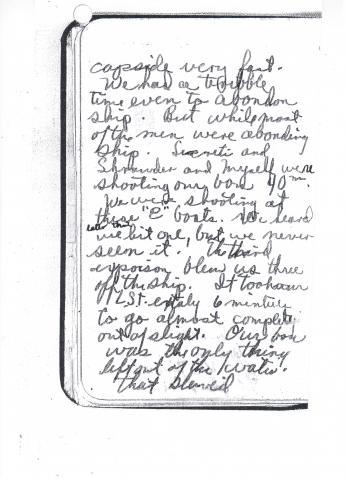 capside very fast.
We had a terribble
time even to abondon
ship. But while most
of the men were abonding
ship. Sucreti and
and myself were
shooting our bow 40 mm.
We were shooting at
these "E" boats. We heard
later that
we hit one, but we never
seem it. The third
exposion blew us three
off the ship. It took our
LST 6 minture
to go almost complete
out of slight. Our bow
was the only thing
left out of the water.
that